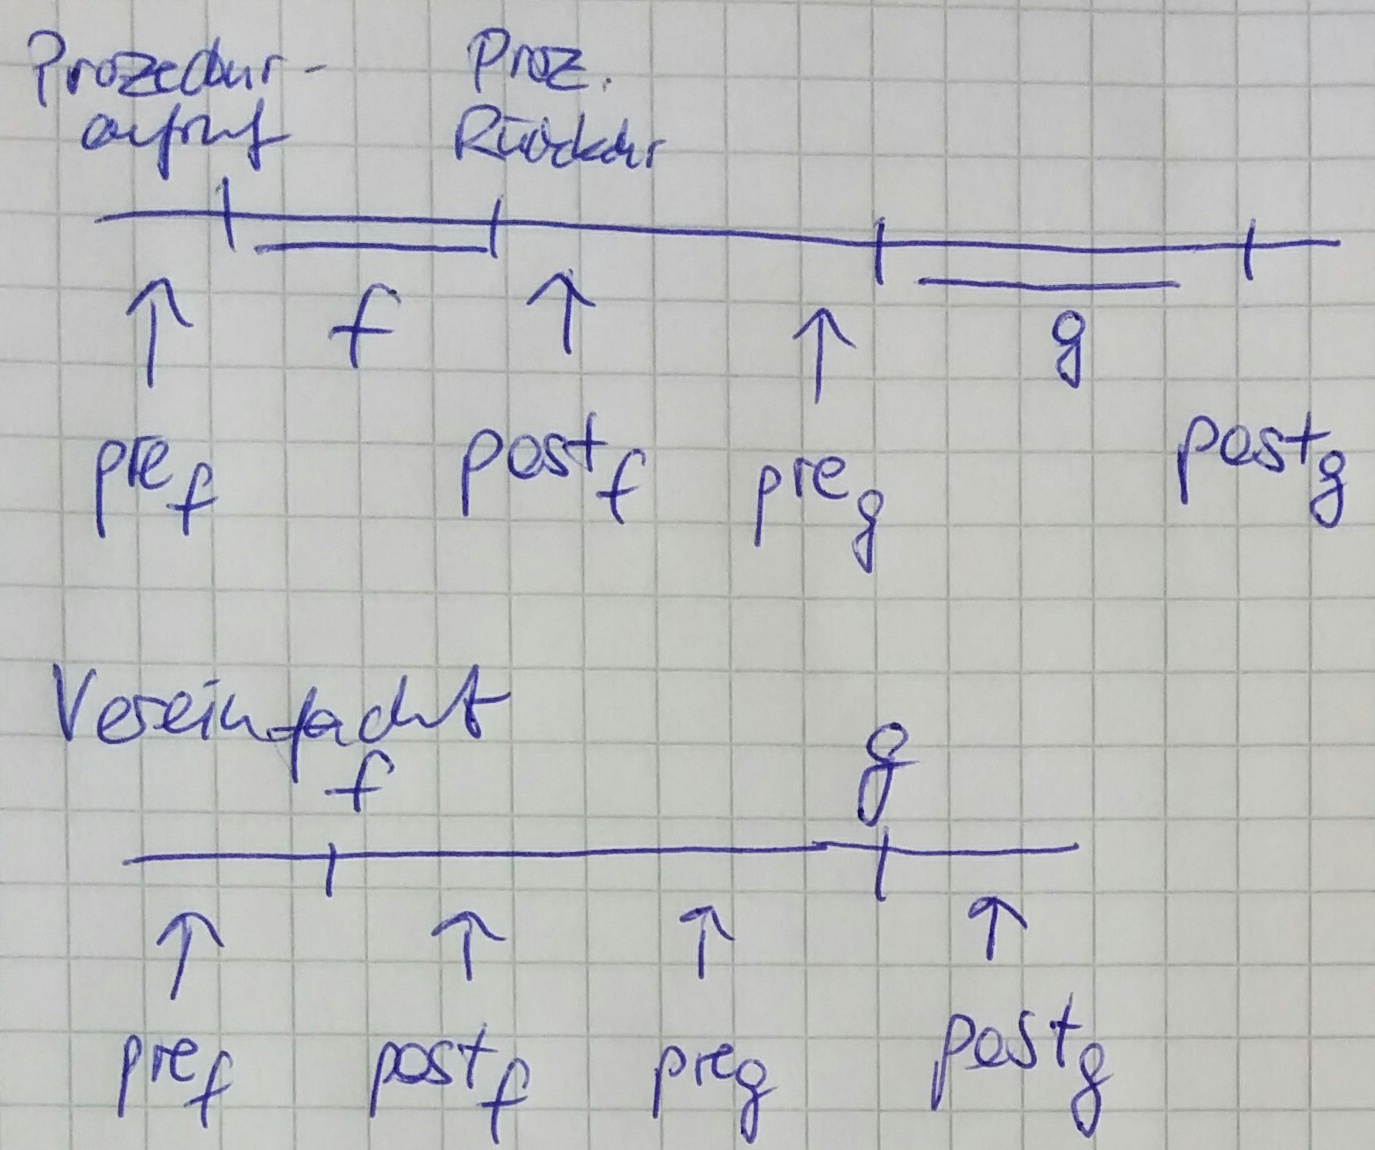 Prozedur-
aufruf
Proz.
Rückkehr
f
g
pre_f post_f pre_g post_g
Vereinfacht
f g
pre_f post_f pre_g post_g